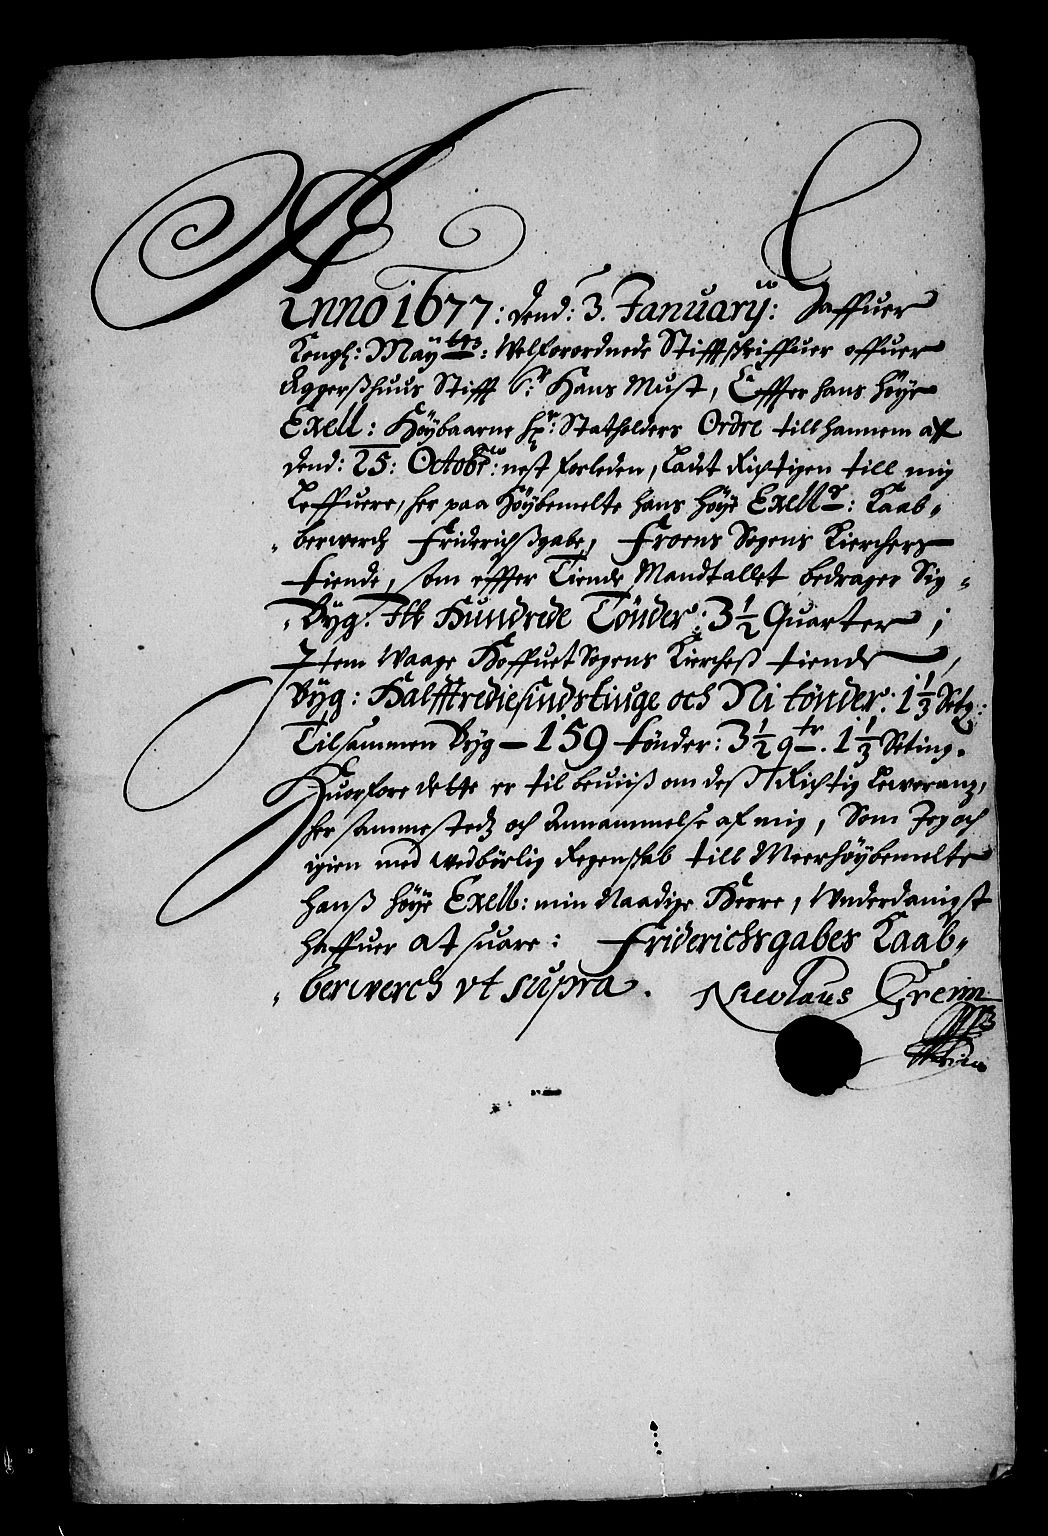 Anno 1677: dend: 3. January: haffuer
Kongl: May:ttz: Welforordnede Stifftskriffuer offuer
Aggerßhuus Stifft Sr: Hans Must, Effter hans høye
Exell: Høybaarne Hr: Statholders Ordre till hannem af
dend: 25: Octobr: nest forleden, Ladt Richtigen till mig
Leffuere, her paa Høybemelte hans høye Exellz: Kaab„
„berwerch Friderichßgabe, Froens Sogens Kierchers
tiende, som effter Tiende Mandtallet bedrager sig„
„Byg: Itt Hundrede Tønder: 3½ Quarter;
Item Waage Hoffuet Sogens Kircheß tiende,
Byg: Halfftrediesindstiuge och Ni tønder: 1⅓ Setg:
Tilsammen Byg – 159 tønder: 3½ qtr. 1⅓ Seting.
Huorfore dette er til beuiiß om deß Richtig Leweranz,
her sammestedz och Annammelse af mig, Som Jeg och
igien med wedbörlig Regenskab till Meerhøybemelte
hanß høye Exell: min Naadige Herre, Underdanigst
haffuer at suare: Friderichsgabes Kaab„
„berwerch vt supra.
Nicolaus